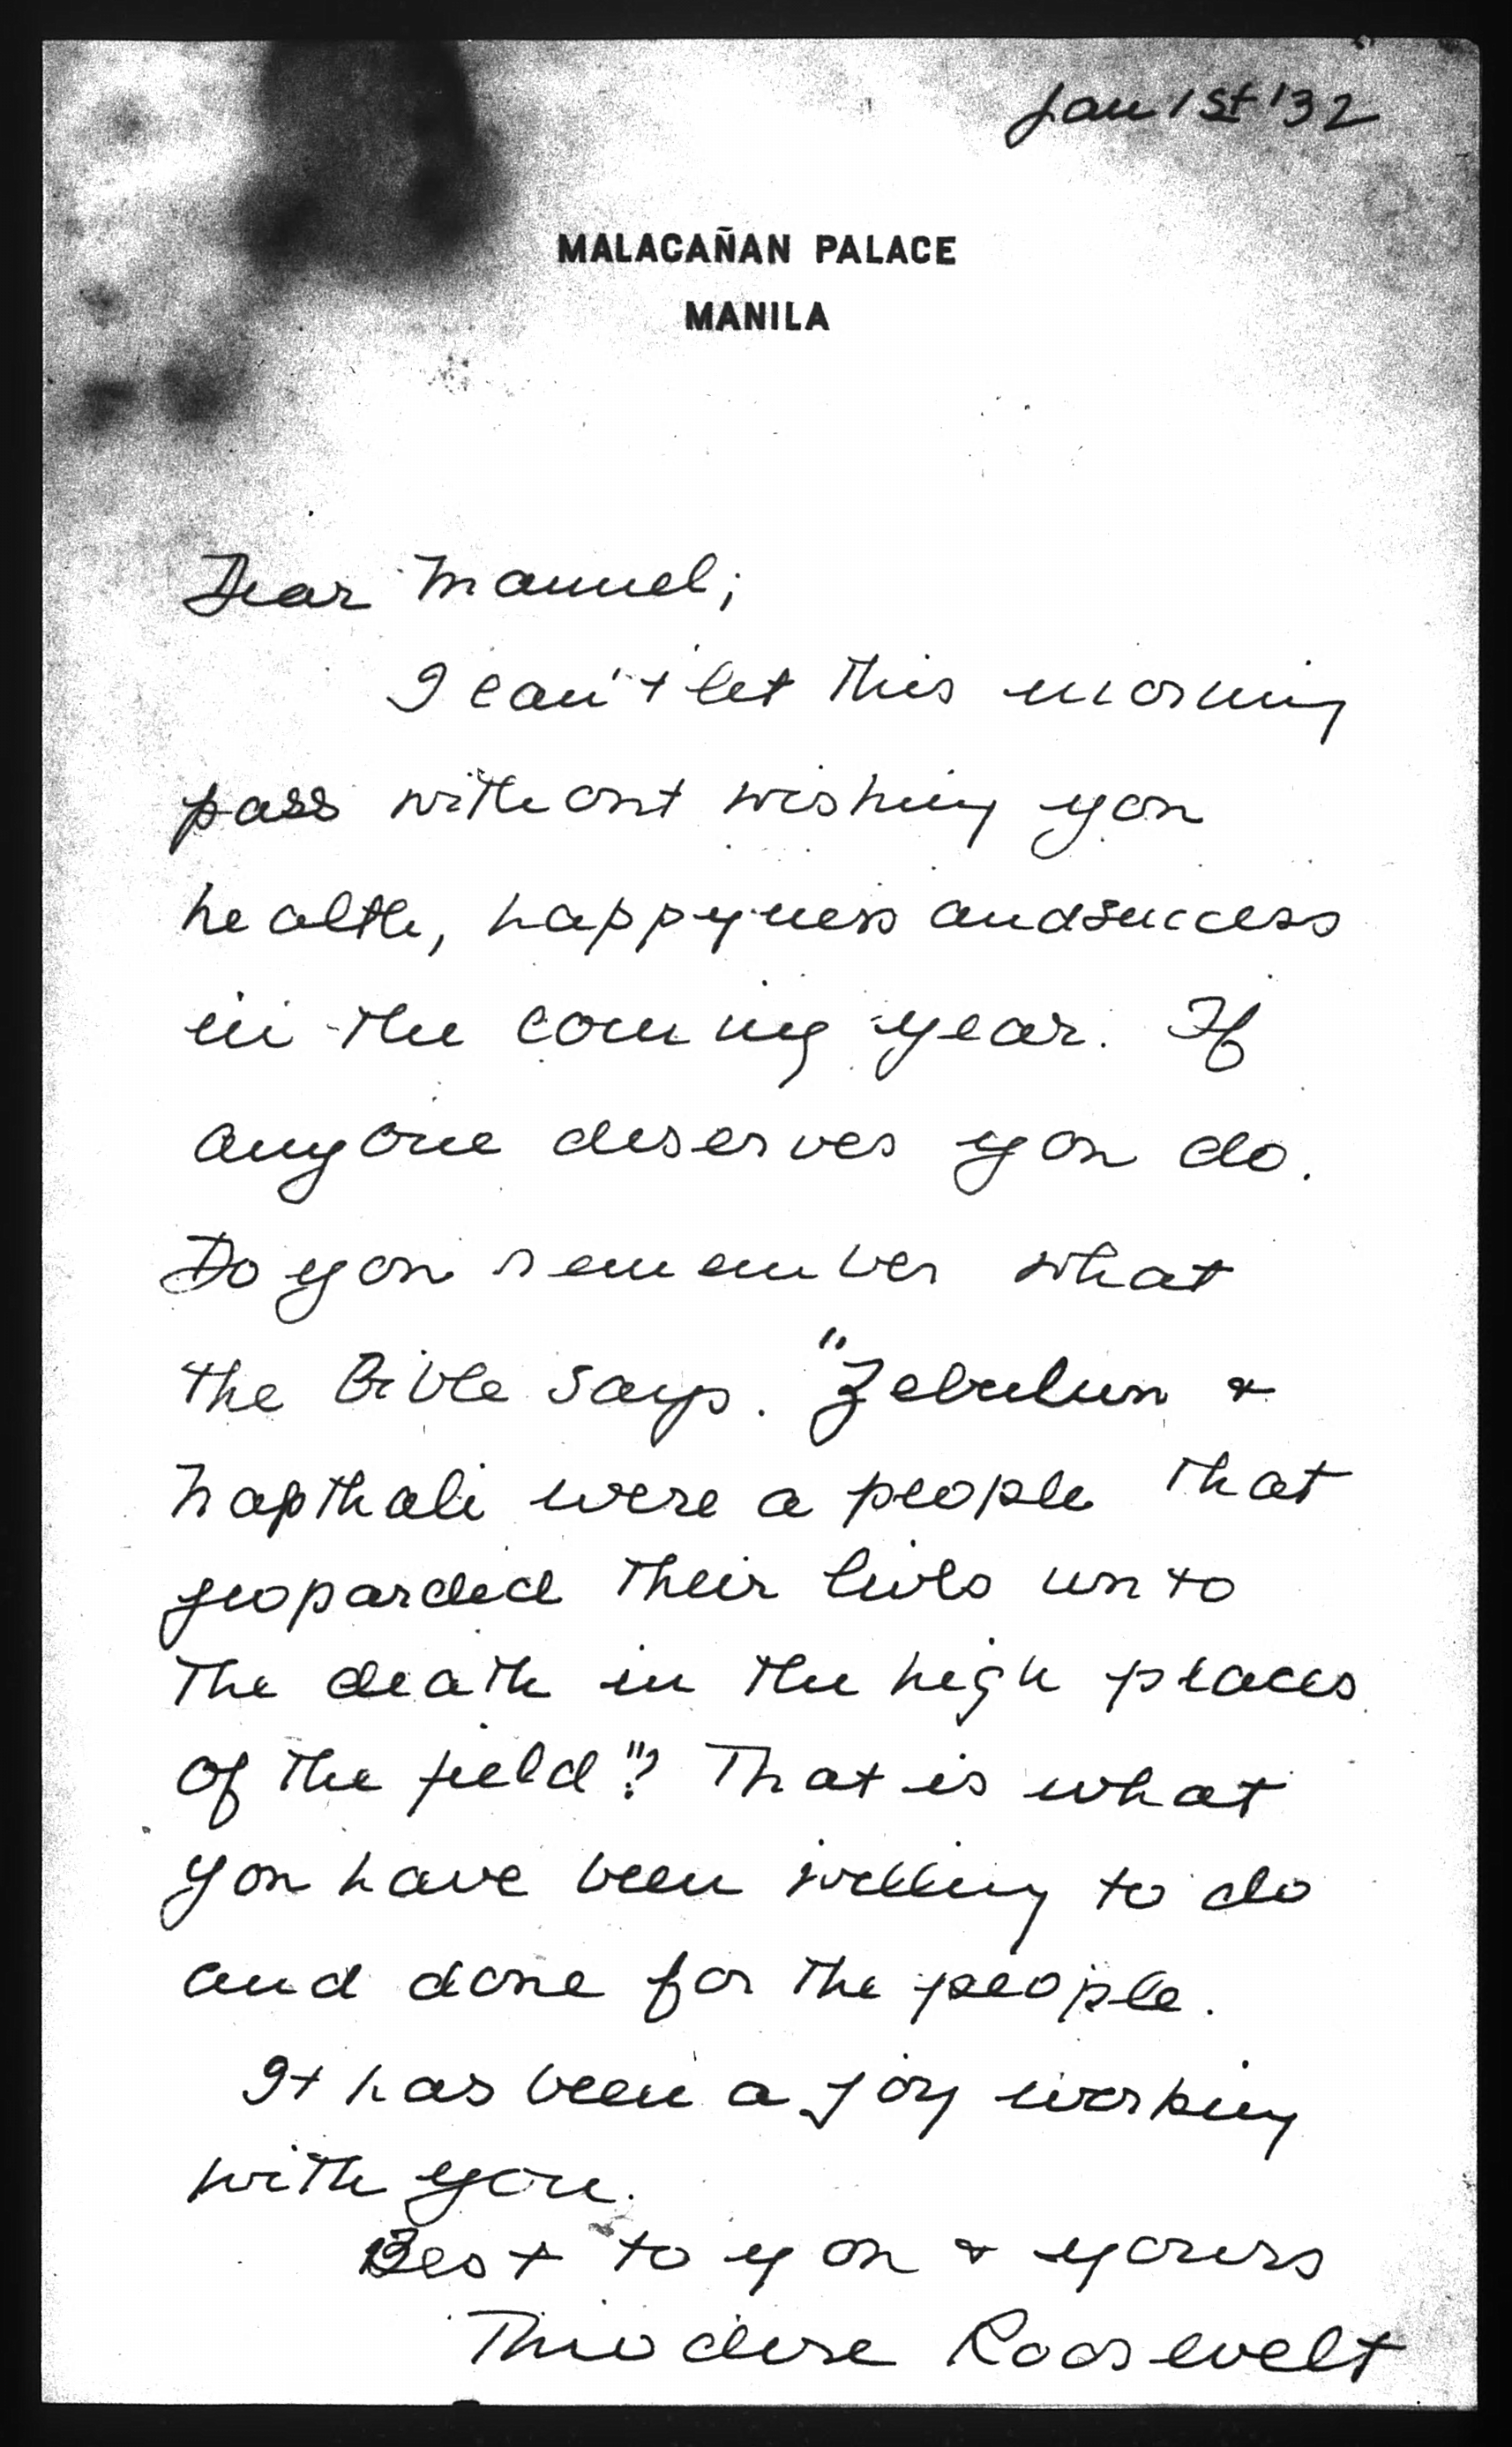 Jan 1st '32
MALACAÑAN PALACE
MANILA
Dear Manuel;
I can't let this morning
pass without wishing you
health, happyness and success
in the coming year. If
anyone deserves you do.
Do you remember what
the Bible says. "Zebulun &
Napthali were a people that
jeoparded their lives unto
the death in the high places
of the field"? That is what
you have been willing to do
and done for the people.
It has been a joy working
with you.
Best to you & yours
Theodore Roosevelt